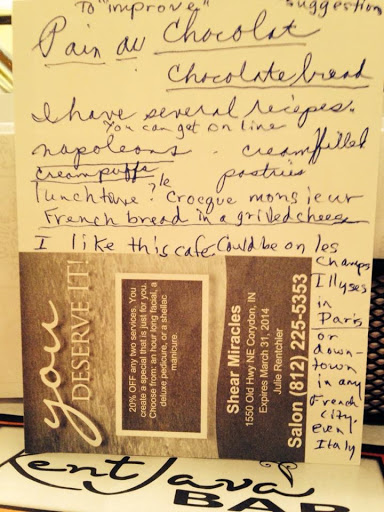 To "improve" suggestion
Pain au Chocolat
Chocolate bread
I have several recipes.
You can get on line
napoleons - creamfilled
creampuffs pastries
lunchtime? le Crocque monsieur
French bread in a grilled cheese
I like this cafe Could be on les
Champs
Illyses
in
Paris
or
down-
town
in any
French
city,
even
Italy
you
DESERVE IT!
20% OFF any two services. You
create a special that is just for you.
Choose from: an hour long facial, a
deluxe pedicure, or a shellac
manicure.
Shear Miracles
1550 Old Hwy NE Corydon, IN
Expires March 31, 2014
Julie Rentchler
Salon (812) 225-5353
ent Java
BAR